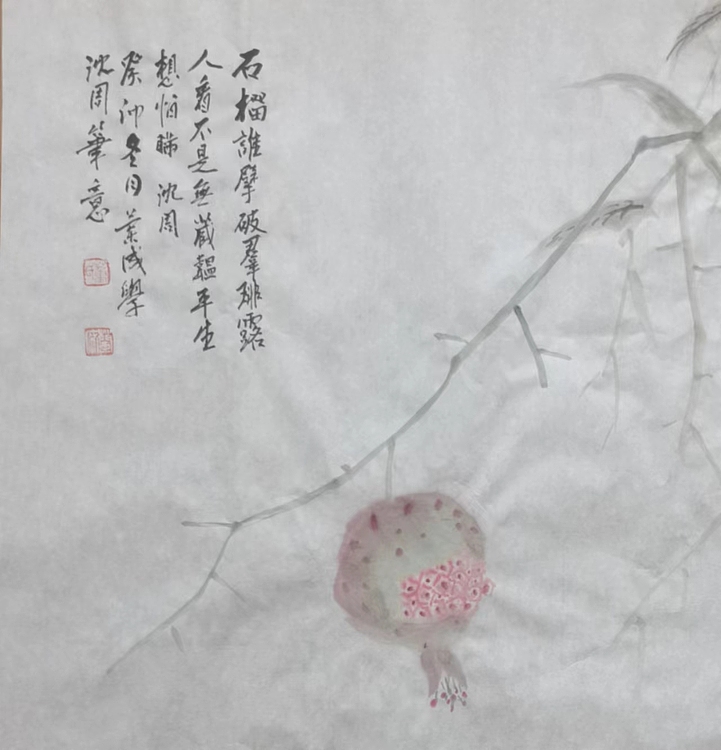 石榴誰擘破羣琲露
人看不是無藏韞平生
想怕瞞 沈周
癸卯冬月 成學
沈周筆意